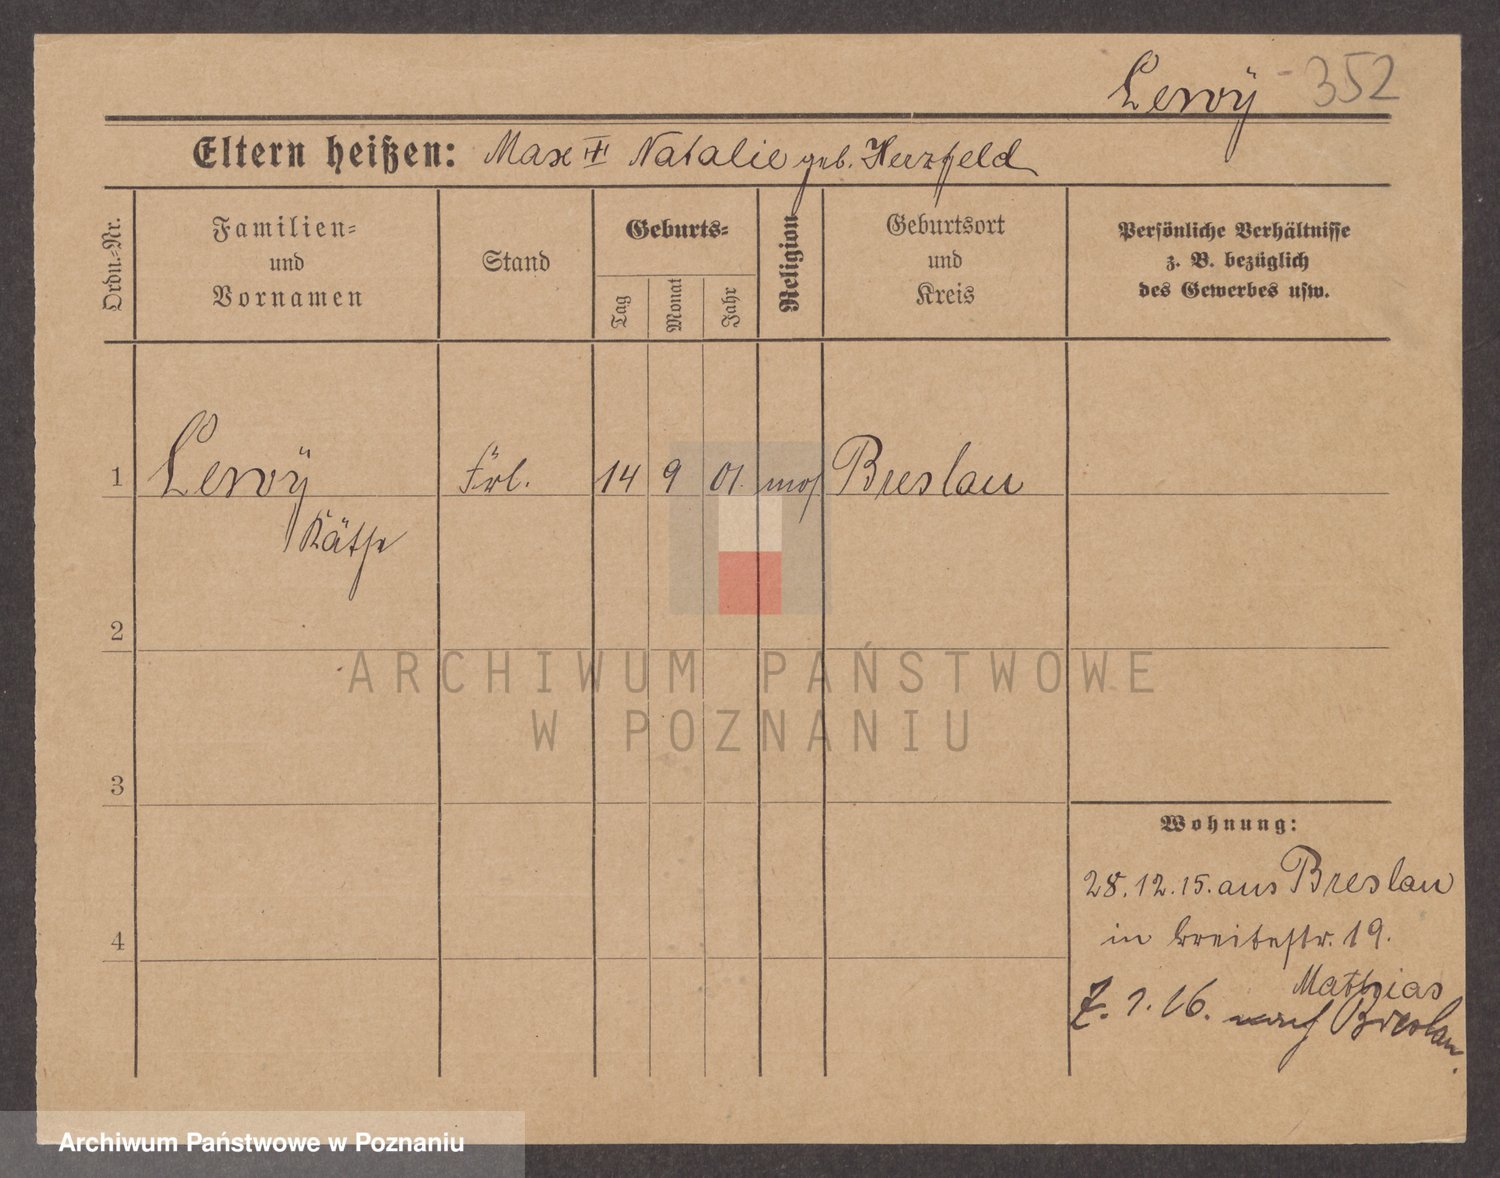 Leroÿ 352
Eltern heißen: Max ‡ Natalie geb. Herzfeld
Ordn.-Nr.
Familien-
und
Vornamen
Stand
Geburts-
Tag
Monat
Jahr
Religion
Geburtsort
und
Kreis
Persönliche Verhältnisse
z. B. bezüglich
des Gewerbes usw.
1 Leroÿ Frl. 14 9 01 mos Breslau
Käthe
2
ARCHIWUM PAŃSTWOWE
W POZNANIU
3
Wohnung:
28.12.15. aus Breslau
in Breitestr. 19.
4
Mathias
7. 1. 16. nach Breslau.
Archiwum Państwowe w Poznaniu